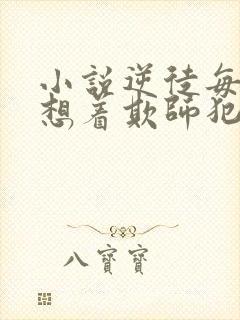 小說逆徒每
想着欺師犯
八寶寶